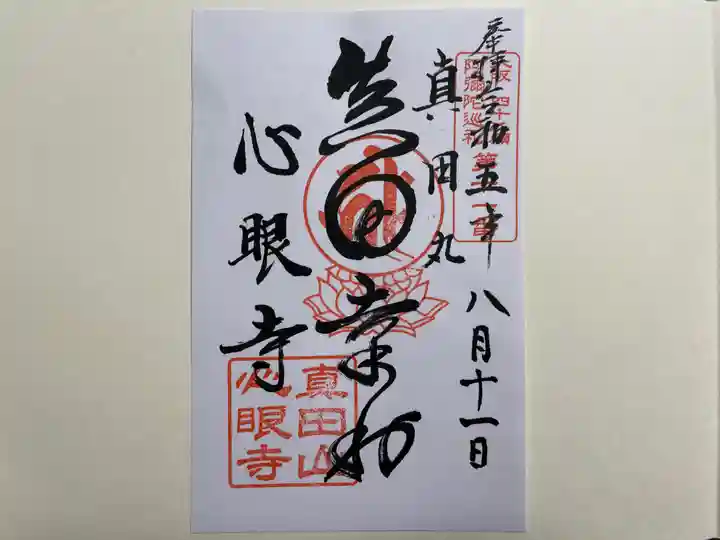 奉拝 令和五年八月十一日
大阪四十八願
阿彌陀巡礼
真田丸
真田幸村
心眼寺
真田山
心眼寺